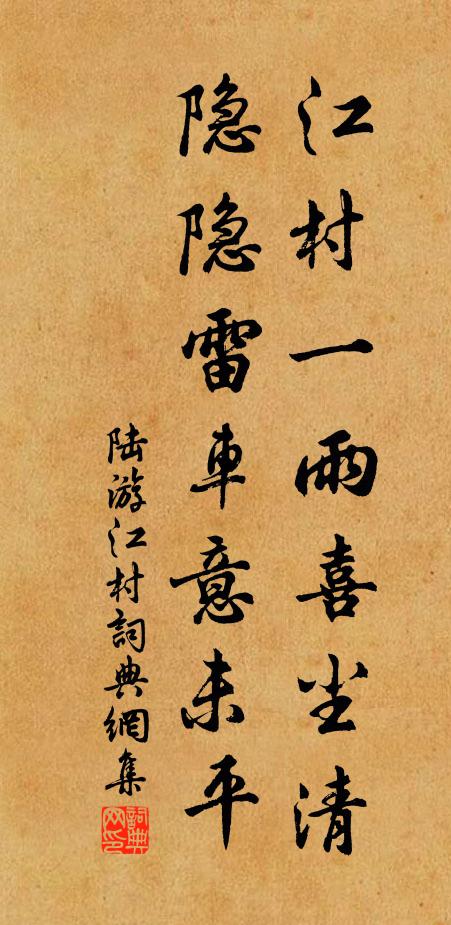 江村一雨喜尘清
隐隐雷車意未平
陆游江村詞典網集
詞典网印